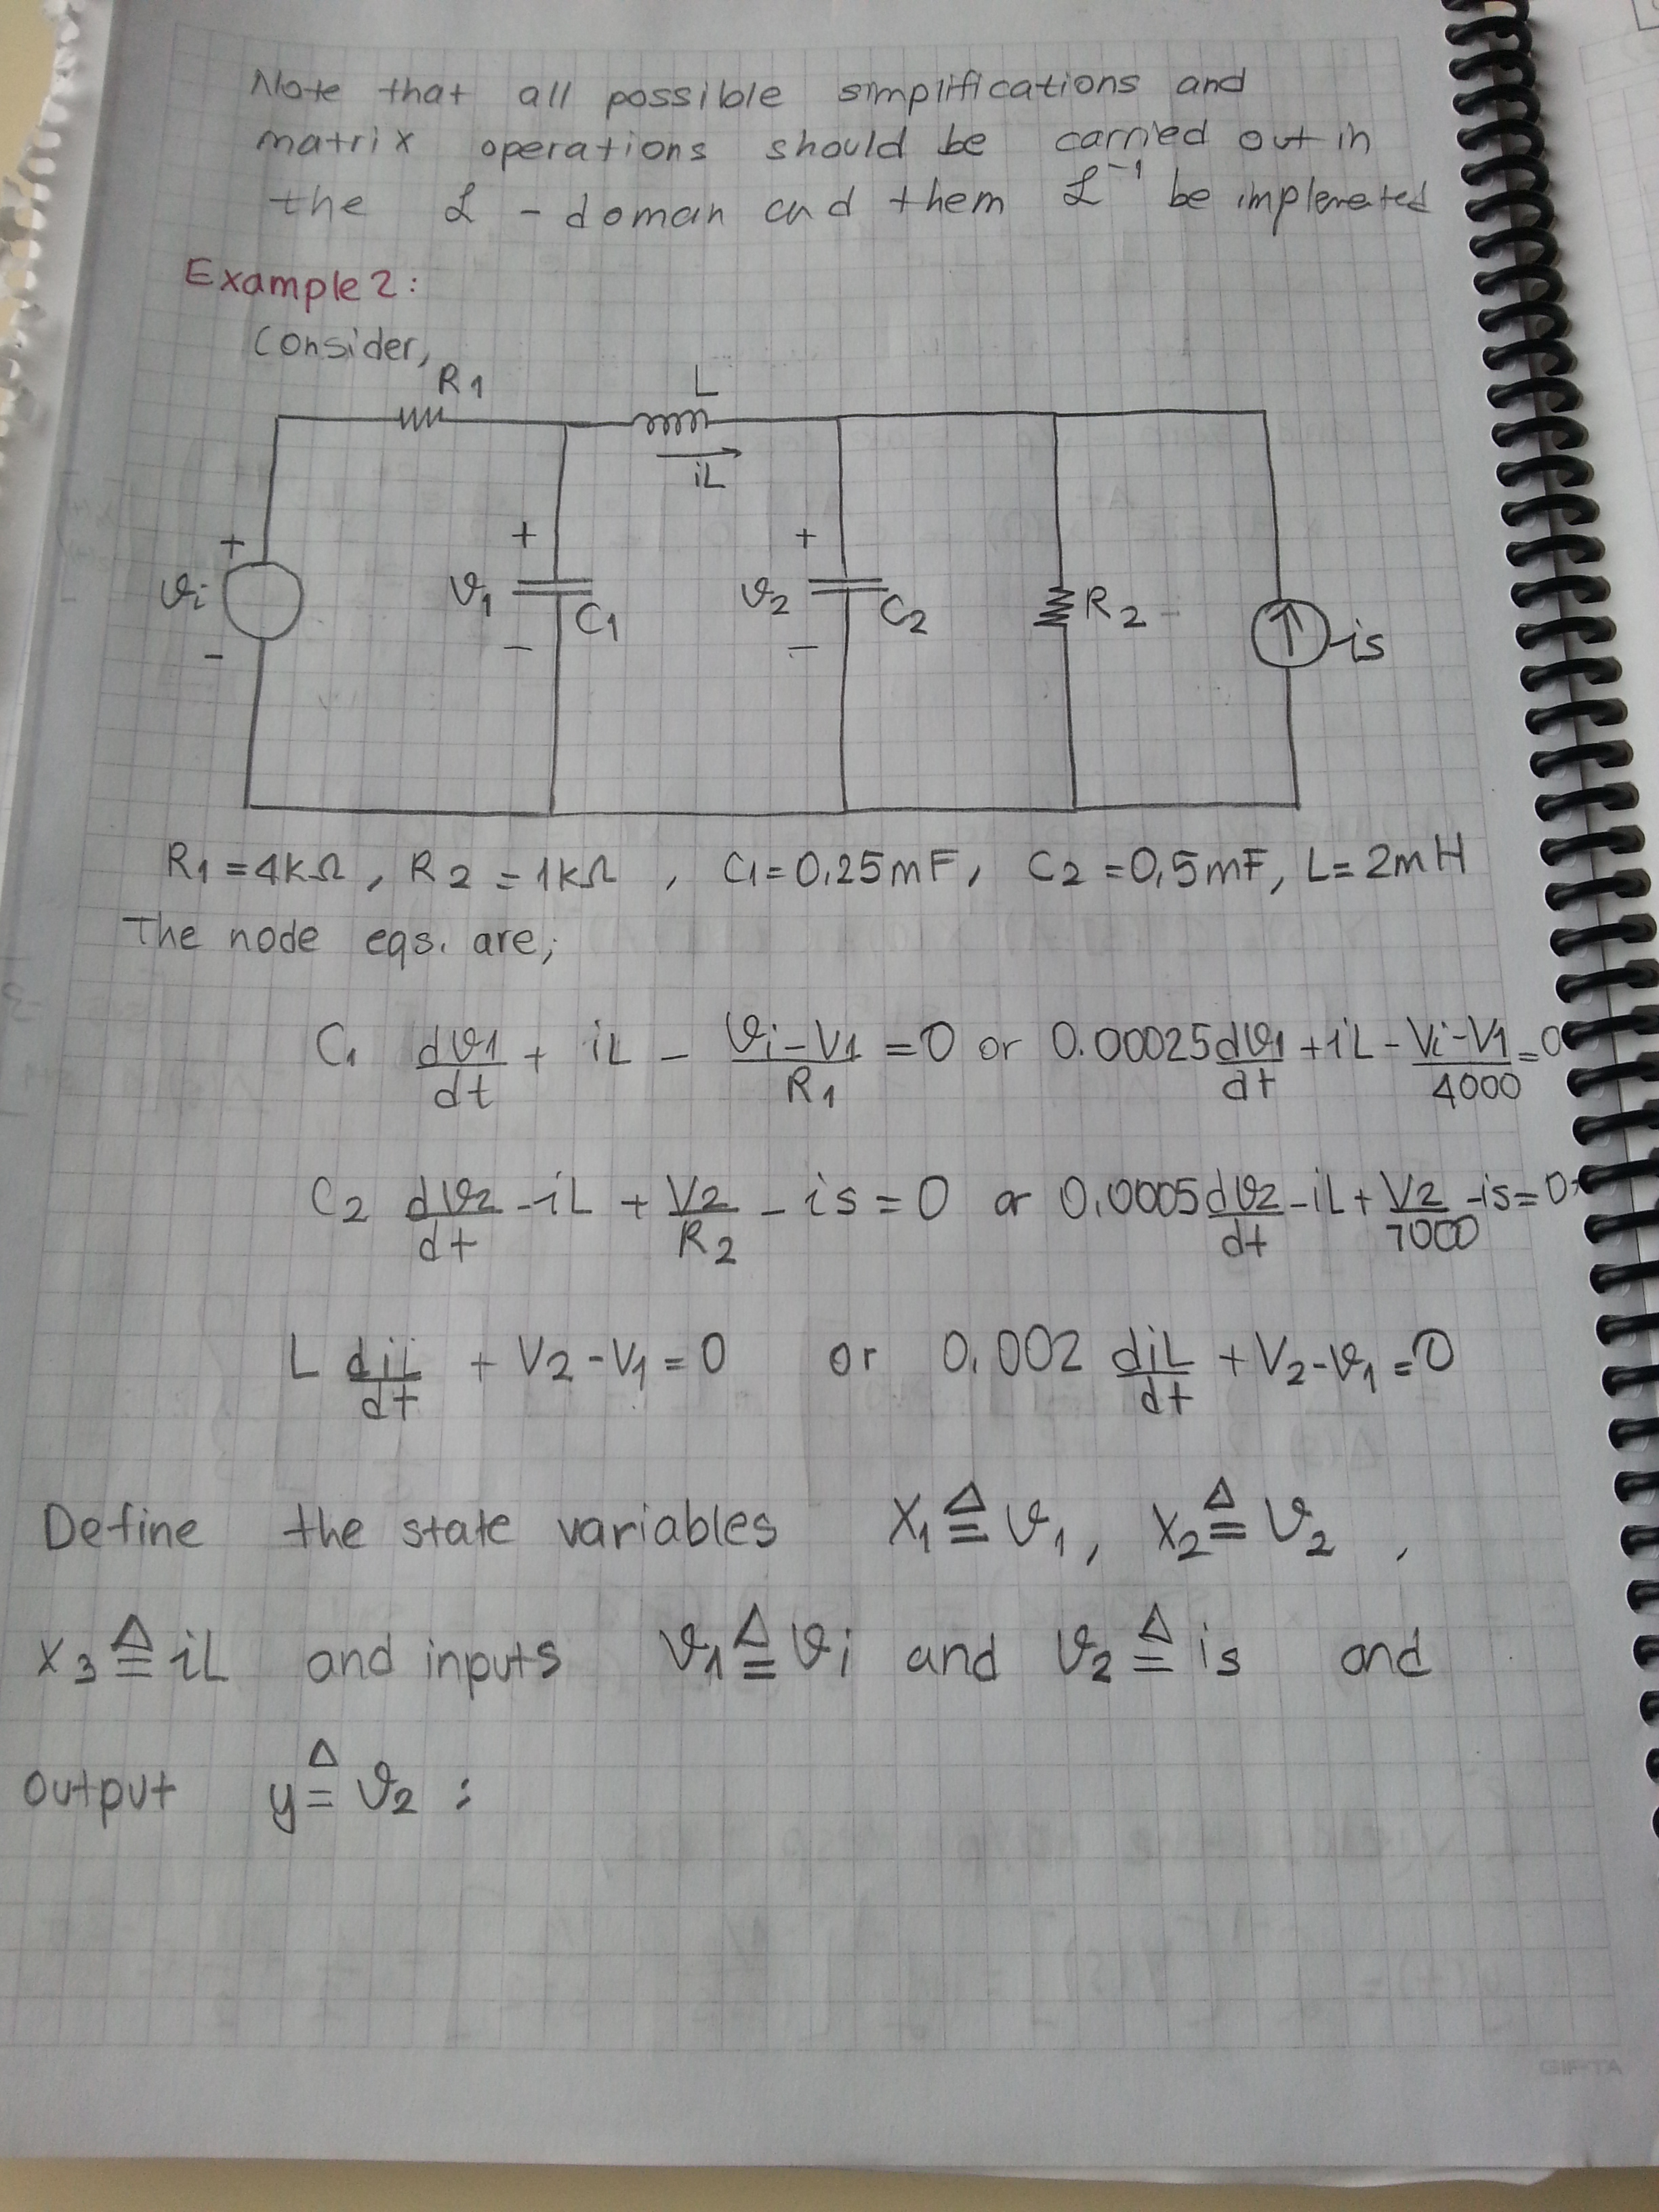 Note that all possible simplifications and
matrix operations should be carried out in
the ℒ - doman and them ℒ⁻¹ be implemeted
Example 2:
Consider,
R1 L
iL
+ + +
vi v1 C1 v2 C2 R2 is
- - -
R1 = 4kΩ, R2 = 1kΩ, C1 = 0.25mF, C2 = 0,5mF, L = 2mH
The node eqs. are;
C1 dv1/dt + iL - (vi - V1)/R1 = 0 or 0.00025 dv1/dt + iL - (Vi - V1)/4000 = 0
C2 dv2/dt - iL + V2/R2 - is = 0 or 0,0005 dv2/dt - iL + V2/1000 - is = 0
L diL/dt + V2 - V1 = 0 or 0.002 diL/dt + V2 - v1 = 0
Define the state variables X1 ≜ v1, X2 ≜ v2,
x3 ≜ iL and inputs v1 ≜ vi and v2 ≜ is and
output y ≜ v2 :
GIPTA